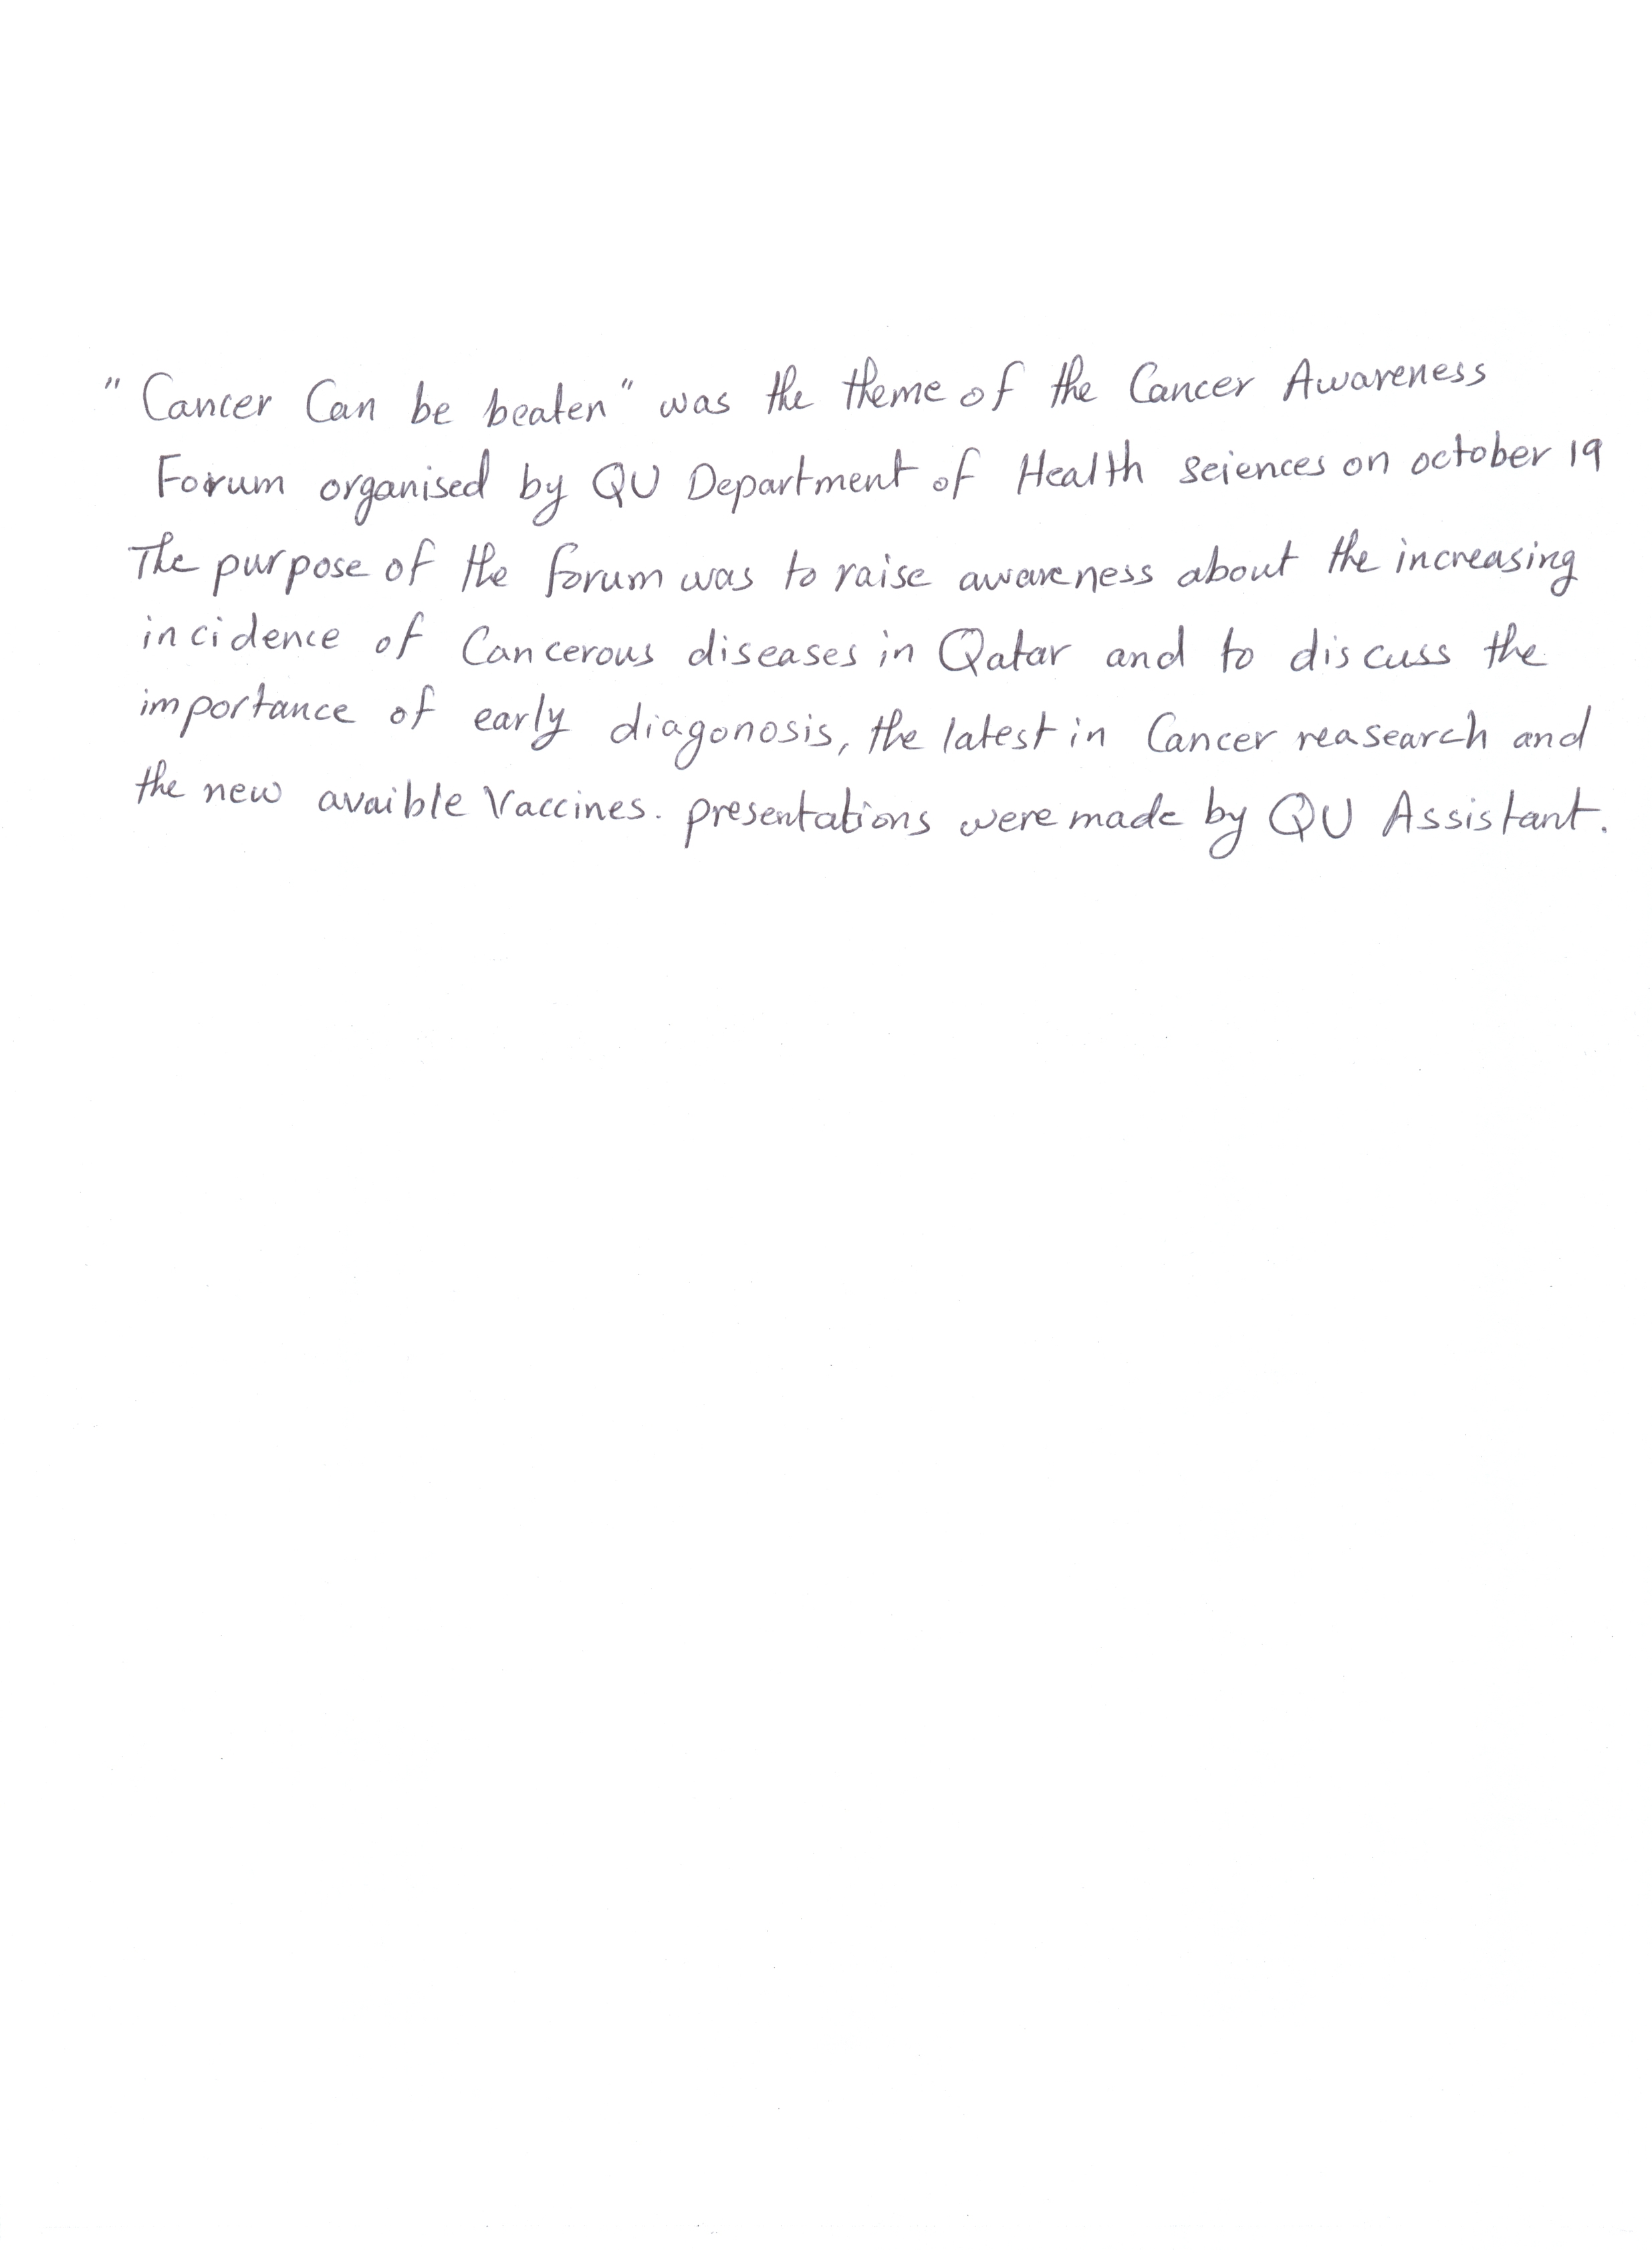 "Cancer Can be beaten" was the theme of the Cancer Awareness
Forum organised by QU Department of Health Sciences on october 19
The purpose of the forum was to raise awareness about the increasing
incidence of Cancerous diseases in Qatar and to discuss the
importance of early diagonosis, the latest in Cancer reasearch and
the new avaible Vaccines. presentations were made by QU Assistant.